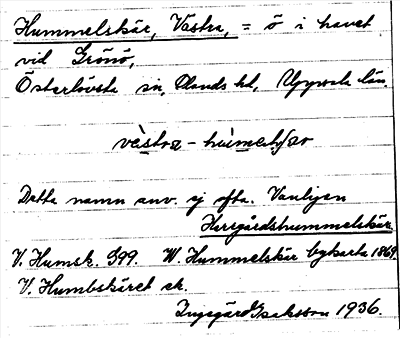 Hummelskär, Västra, = ö i havet
vid Grönö,
Österlövsta sn, Olands hd, Uppsala län.
västra - hùmelʃæ̀r
Detta namn anv. ej ofta. Vanligen
Herrgårdshummelskär.
V. Humsk. G99. W. Hummelskär bykarta 1869
V. Humbskäret ek.
Ingegärd Isaksson 1936.